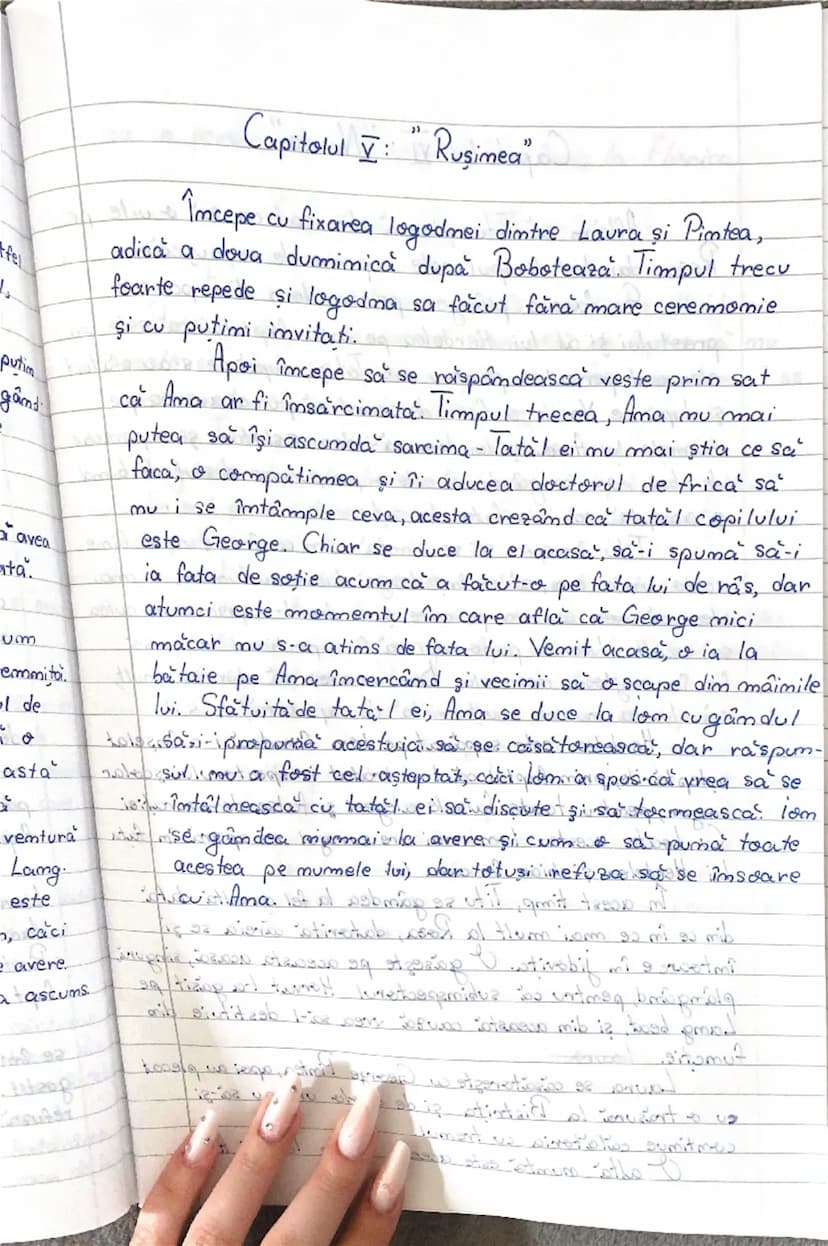 Capitolul V: "Rușimea"
Începe cu fixarea logodnei dintre Laura și Pintea,
adică a doua duminică după Bobotează. Timpul trecu
foarte repede și logodna sa făcut fără mare ceremonie
și cu puțini invitați.
Apoi începe să se răspândească veste prin sat
că Ana ar fi însărcinată. Timpul trecea, Ana nu mai
putea să își ascundă sarcina - Tatăl ei nu mai știa ce să
facă, o compătimea și îi aducea doctorul de frică să
nu i se întâmple ceva, acesta crezând că tatăl copilului
este George. Chiar se duce la el acasă, să-i spună să-i
ia fata de soție acum că a făcut-o pe fata lui de râs, dar
atunci este momentul în care află că George nici
măcar nu s-a atins de fata lui. Venit acasă, o ia la
bătaie pe Ana încercând și vecinii să o scape din mâinile
lui. Sfătuită de tatăl ei, Ana se duce la Ion cu gândul
să-i propună acestuia să se căsătorească, dar răspun-
sul nu a fost cel așteptat, căci Ion a spus că vrea să se
întâlnească cu tatăl ei să discute și să tocmească. Ion
se gândea numai la avere și cum o să pună toate
acestea pe numele lui, dar totuși refuza să se însoare
cu Ana.
puțin
gând
avea
um
l de
o
astă
ventură
Lang.
este
căci
avere.
ascuns.